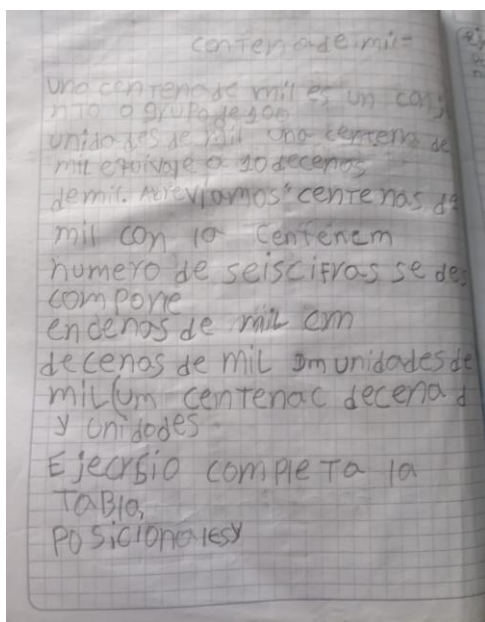 centenademil=
una centena de mil es un conj
nto o grupo de 100
unidades de mil una centena de
mil equivale a 10 decenas
demil. Abreviamos "centenas de
mil con la centenem
numero de seis cifras se des
compone
en denas de mil cm
decenas de mil Dm unidades de
mil (um centenac decena d
y unidades.
Ejecrsio completa la
tabla,
posicionalesy